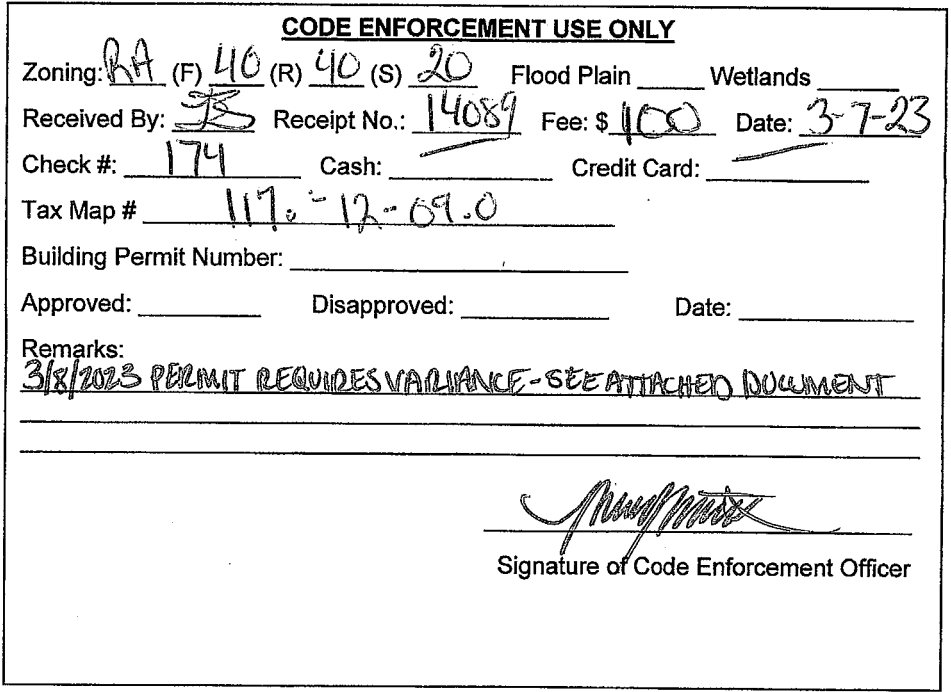 CODE ENFORCEMENT USE ONLY
Zoning: RA (F) 40 (R) 40 (S) 20 Flood Plain Wetlands
Received By: Receipt No.: 14089 Fee: $ 100 Date: 3-7-23
Check #: 174 Cash: Credit Card:
Tax Map # 117.-12-09.0
Building Permit Number:
Approved: Disapproved: Date:
Remarks:
3/8/2023 PERMIT REQUIRES VARIANCE - SEE ATTACHED DOCUMENT
Signature of Code Enforcement Officer